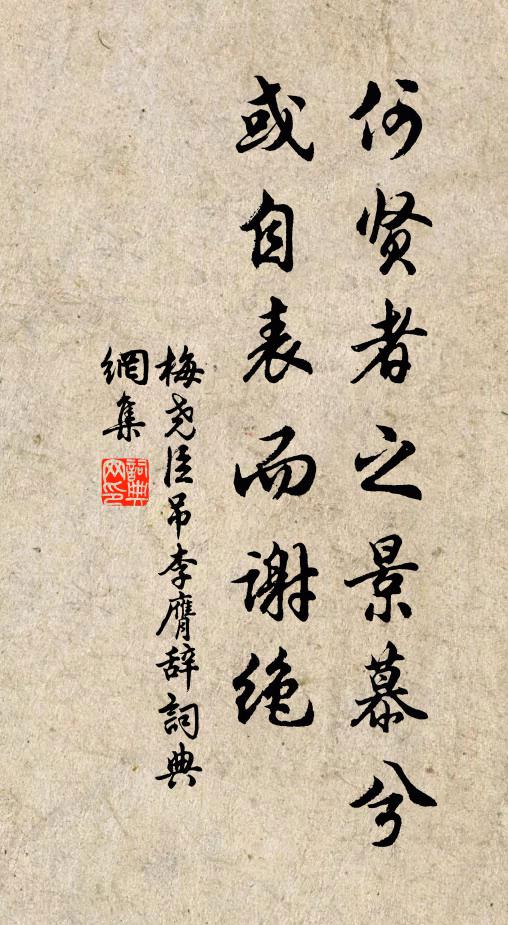 何贤者之景慕兮
或自表而谢绝
梅尧臣吊李膺辞詞典
網集
詞典网印